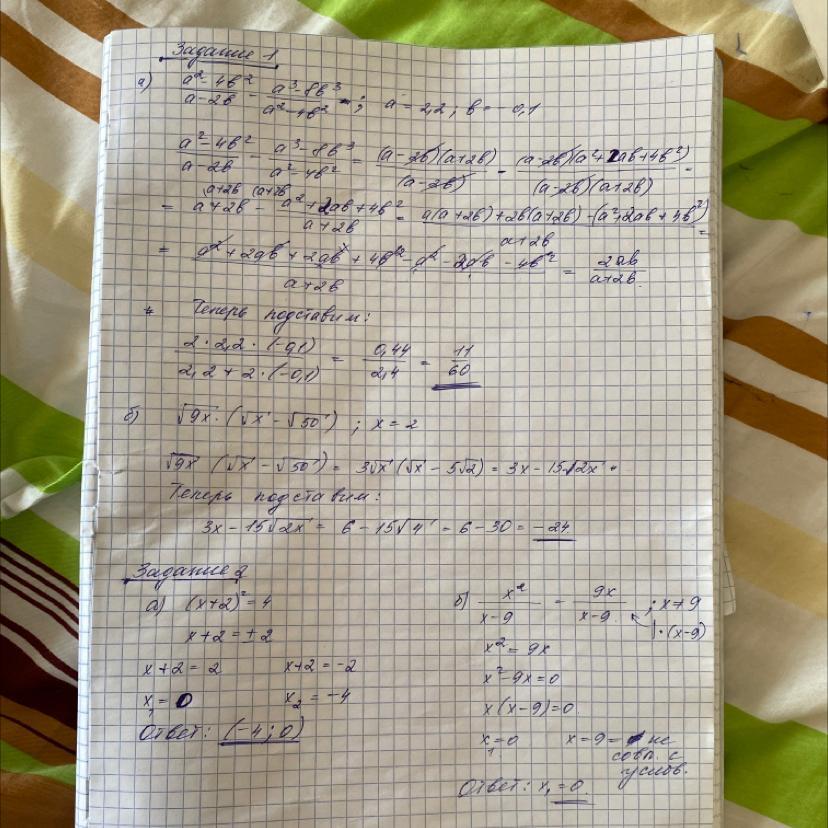 Задание 1
а) (a² - 4b²)/(a - 2b) - (a³ - 8b³)/(a² - 4b²) ; a = 2,2 ; b = -0,1
(a² - 4b²)/(a - 2b) - (a³ - 8b³)/(a² - 4b²) = (a - 2b)(a + 2b)/(a - 2b) - (a - 2b)(a² + 2ab + 4b²)/((a - 2b)(a + 2b)) =
(a+2b (a+2b
= a + 2b - (a² + 2ab + 4b²)/(a + 2b) = (a(a + 2b) + 2b(a + 2b) - (a² + 2ab + 4b²))/(a + 2b) =
= (a² + 2ab + 2ab + 4b² - a² - 2ab - 4b²)/(a + 2b) = 2ab/(a + 2b)
Теперь подставим:
(2 · 2,2 · (-0,1))/(2,2 + 2 · (-0,1)) = 0,44/2,4 = 11/60
б) √9x · (√x - √50) ; x = 2
√9x (√x - √50) = 3√x (√x - 5√2) = 3x - 15√2x
Теперь подставим:
3x - 15√2x = 6 - 15√4 = 6 - 30 = -24
Задание 2
а) (x+2)² = 4
x+2 = ±2
x+2 = 2 x+2 = -2
x₁ = 0 x₂ = -4
Ответ: (-4; 0)
б) x²/(x-9) = 9x/(x-9) ; x≠9
|·(x-9)
x² = 9x
x² - 9x = 0
x(x-9) = 0
x₁ = 0 x = 9 - не
совп. с
услов.
Ответ: x₁ = 0